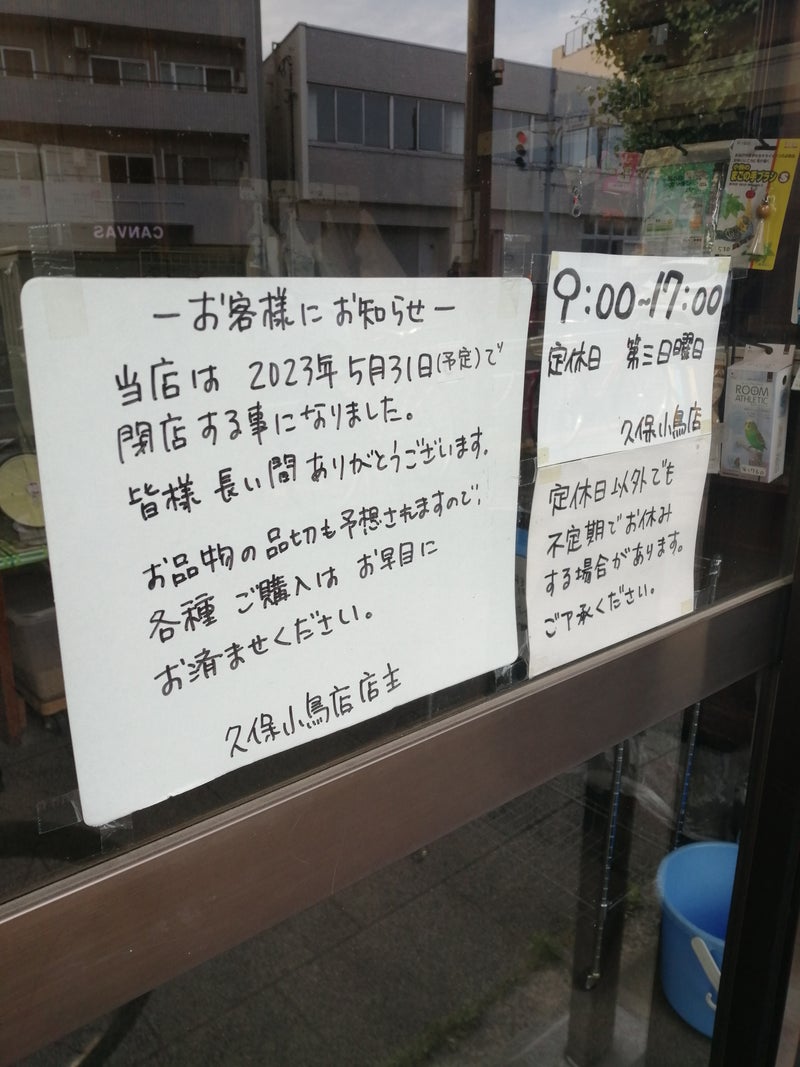 ーお客様に お知らせー
当店は 2023年 5月31日(予定)で
閉店する事になりました。
皆様 長い間 ありがとうございます。
お品物の 品切も予想されますので、
各種 ご購入は お早目に
お済ませください。
久保小鳥店店主
9:00~17:00
定休日 第三日曜日
久保小鳥店
定休日以外でも
不定期でお休み
する場合があります。
ご了承ください。
CANVAS
ROOM
ATHLETIC